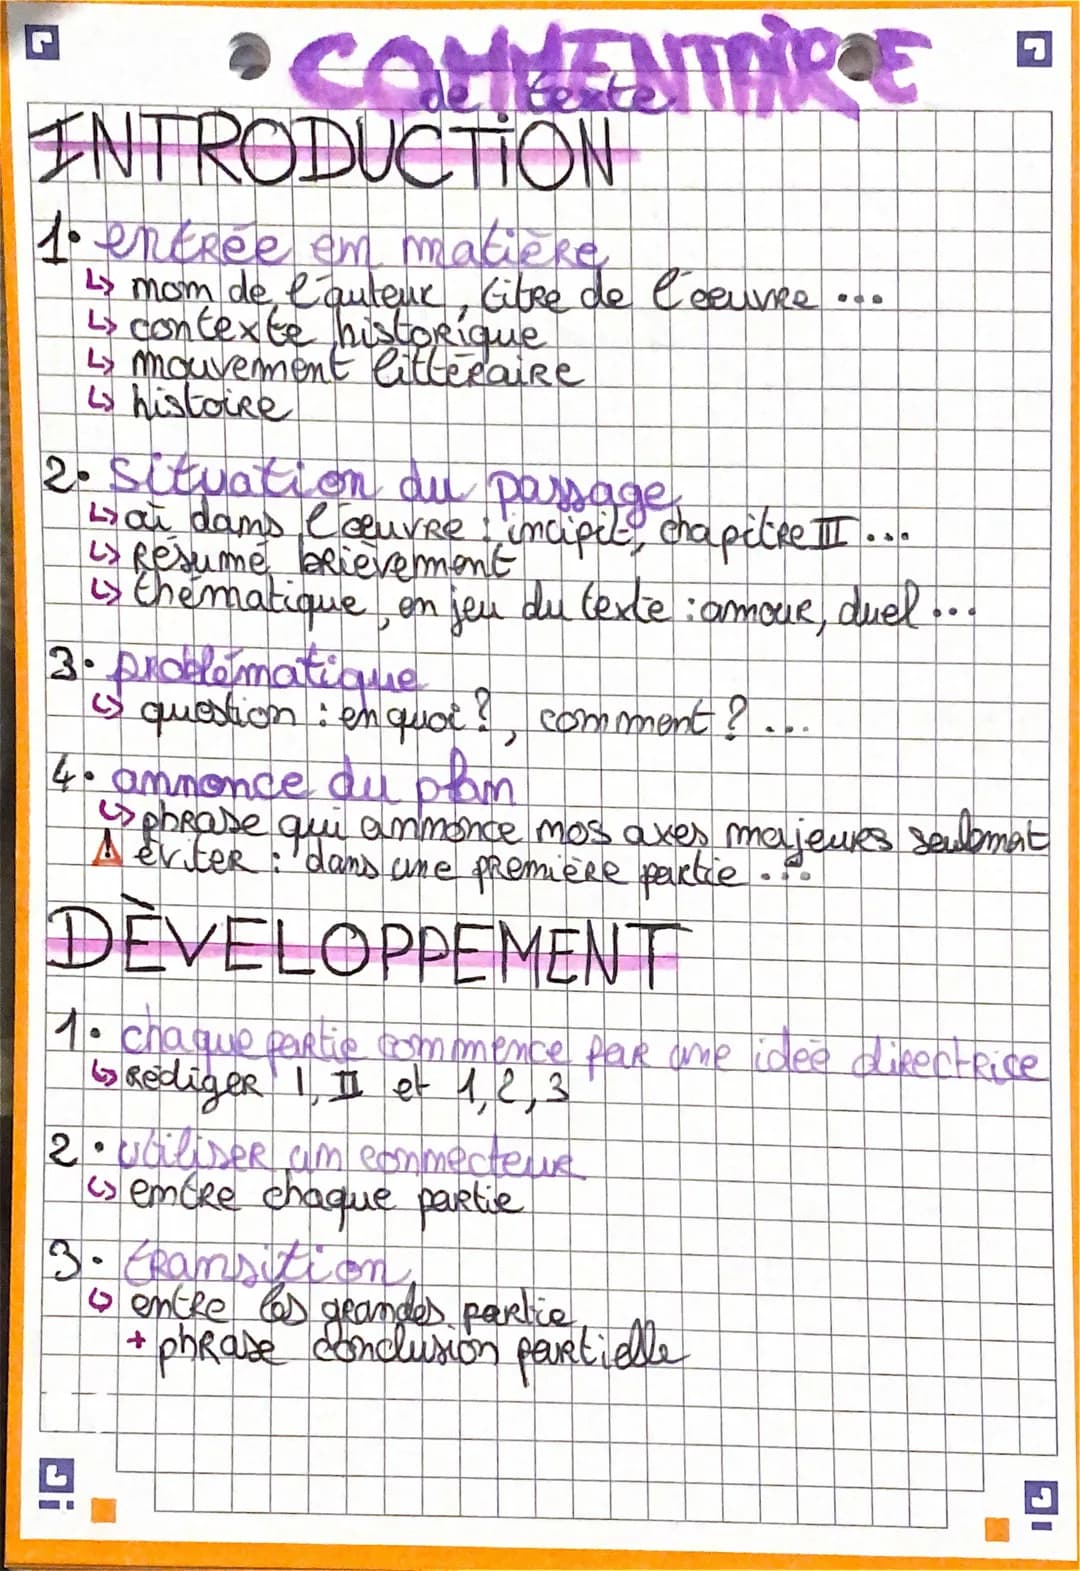 COMMENTAIRE
de texte
INTRODUCTION
1. entrée en matière
↳ nom de l'auteur, titre de l'oeuvre ...
↳ contexte historique
↳ mouvement littéraire
↳ histoire
2. situation du passage
↳ où dans l'oeuvre : incipit, chapitre III ...
↳ résumé brièvement
↳ thématique, en jeu du texte : amour, duel ...
3. problématique
↳ question : en quoi ?, comment ? ...
4. annonce du plan
↳ phrase qui annonce nos axes majeurs seulemnt
⚠ éviter : "dans une première partie ...
DÉVELOPPEMENT
1. chaque partie commence par une idée directrice
↳ rédiger I, II et 1, 2, 3
2. utiliser un connecteur
↳ entre chaque partie
3. transition
↳ entre les grandes partie
+ phrase conclusion partielle